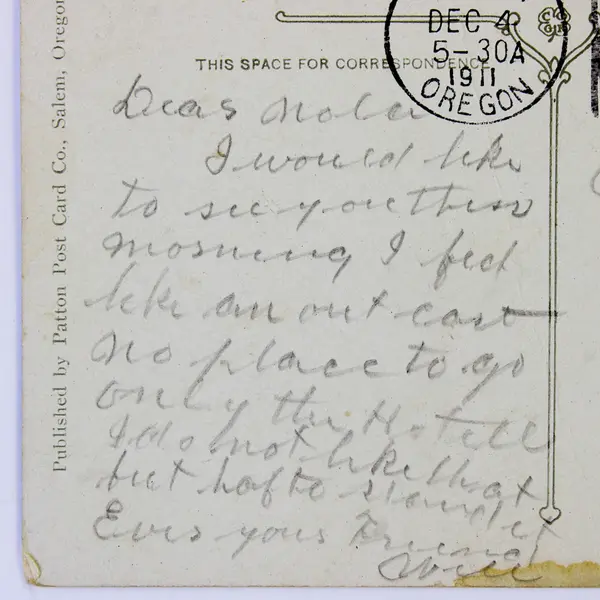 DEC 4
5-30A
1911
OREGON
THIS SPACE FOR CORRESPONDENCE
Published by Patton Post Card Co., Salem, Oregon
Dear Nola
I would like
to see you this
morning I feel
like an out cast
no place to go
only the Hotell
I do not like that
but haf to stand it
Ever your Friend
Will